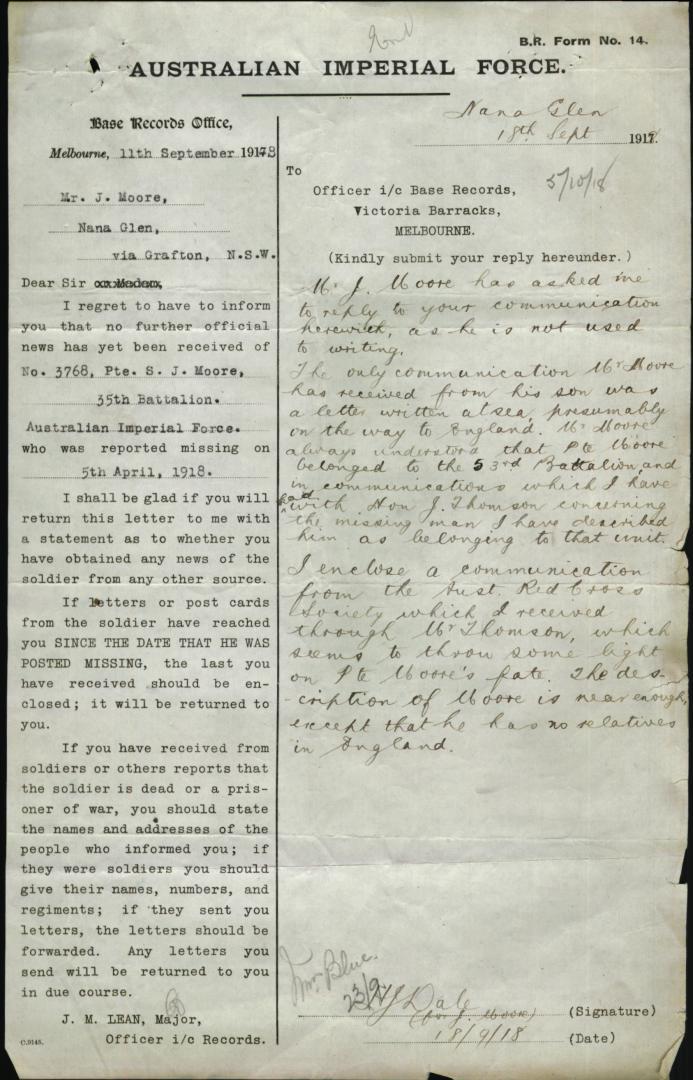 B.R. Form No. 14.
AUSTRALIAN IMPERIAL FORCE.
Base Records Office,
Melbourne, 11th September 1918
Mr. J. Moore,
Nana Glen,
via Grafton, N.S.W.
Dear Sir or Madam,
I regret to have to inform
you that no further official
news has yet been received of
No. 3768, Pte. S. J. Moore,
35th Battalion.
Australian Imperial Force.
who was reported missing on
5th April, 1918.
I shall be glad if you will
return this letter to me with
a statement as to whether you
have obtained any news of the
soldier from any other source.
If letters or post cards
from the soldier have reached
you SINCE THE DATE THAT HE WAS
POSTED MISSING, the last you
have received should be en-
closed; it will be returned to
you.
If you have received from
soldiers or others reports that
the soldier is dead or a pris-
oner of war, you should state
the names and addresses of the
people who informed you; if
they were soldiers you should
give their names, numbers, and
regiments; if they sent you
letters, the letters should be
forwarded. Any letters you
send will be returned to you
in due course.
J. M. LEAN, Major,
Officer i/c Records.
C.9145.
Nana Glen
18th Sept 1918.
5/10/18
To
Officer i/c Base Records,
Victoria Barracks,
MELBOURNE.
(Kindly submit your reply hereunder.)
Mr J. Moore has asked me
to reply to your communication
herewith, as he is not used
to writing.
The only communication Mr Moore
has received from his son was
a letter written at sea, presumably
on the way to England. Mr Moore
always understood that Pte Moore
belonged to the 53rd Battalion, and
in communications which I have
had with Hon J. Thomson concerning
the missing man I have described
him as belonging to that unit.
I enclose a communication
from the Aust. Red Cross
Society which I received
through Mr Thomson, which
seems to throw some light
on Pte Moore's fate. The des-
-cription of Moore is near enough,
except that he has no relatives
in England.
Blue.
23/9
J Dale
(for J. Moore) (Signature)
18/9/18 (Date)